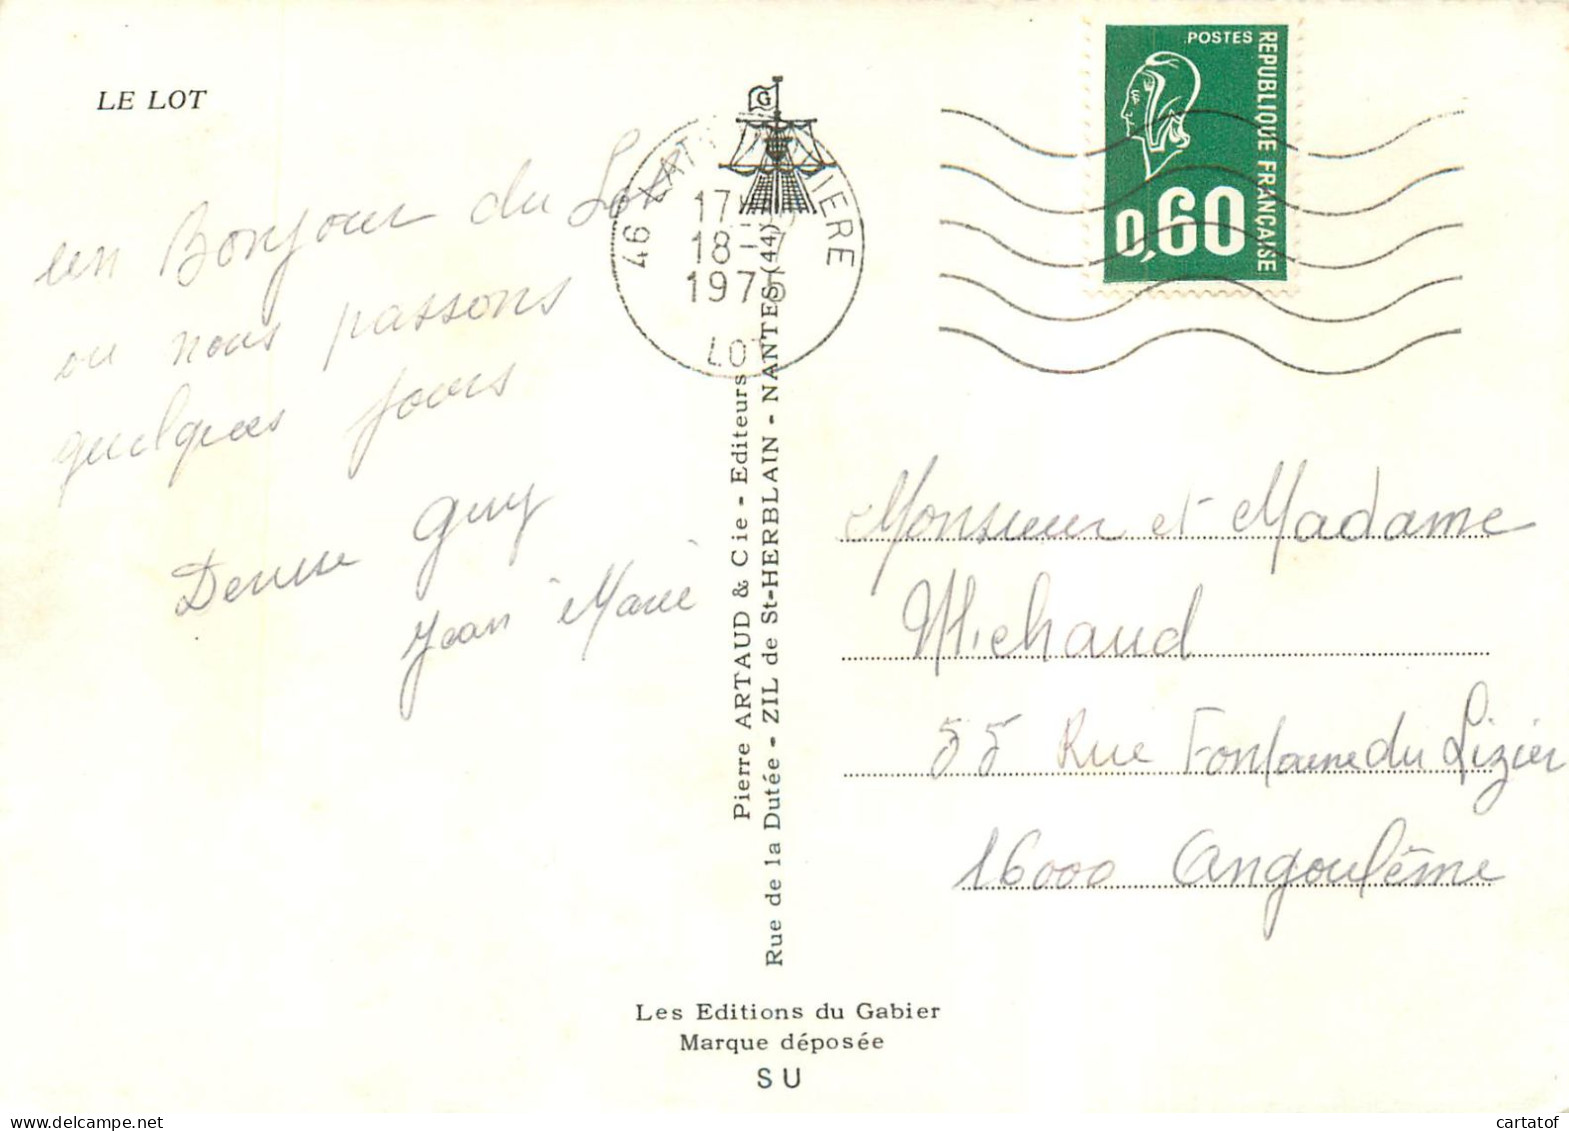 LE LOT
un Bonjour du Lot
ou nous passons
quelques jours
Denise Guy
Jean Marie
G
46 LATR IERE
17
18-7
1975
LOT
Pierre ARTAUD & Cie - Editeurs
Rue de la Dutée - ZIL de St-HERBLAIN - NANTES (44)
Les Editions du Gabier
Marque déposée
SU
POSTES
REPUBLIQUE FRANÇAISE
0,60
Monsieur et Madame
Michaud
55 Rue Fontaine du Lizier
16000 Angoulême
cartatof